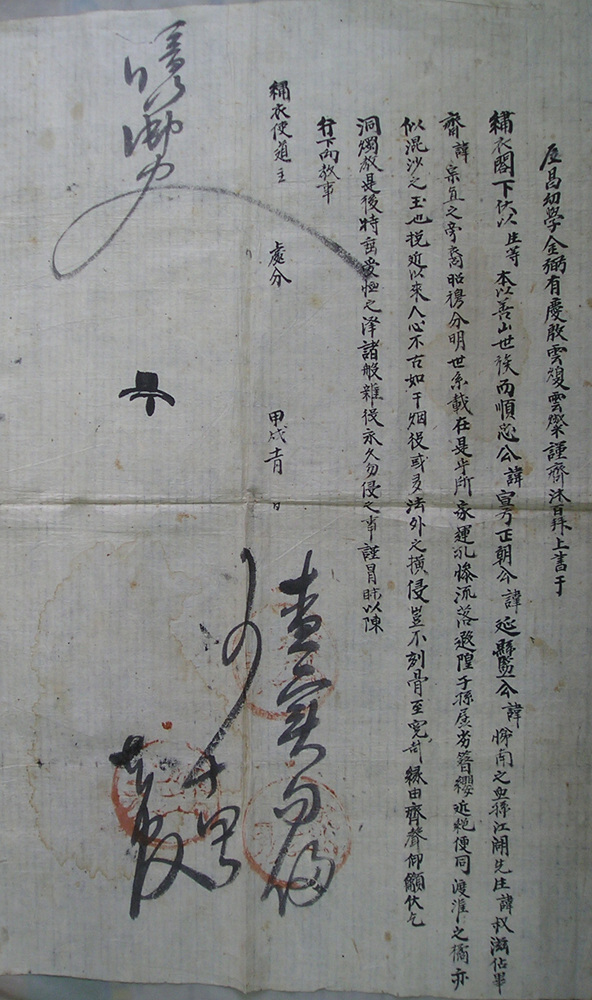 居昌幼學金弼有慶敢雲復雲燦謹齊沐百拜上書于
繡衣閤下伏以 生等 本以善山世族而順忠公 諱 宣弓正朝公 諱 延縣監公 諱 悌南之血孫江湖先生 諱 叔滋佔畢
齋 諱 宗直之旁裔昭穆分明世系載在是乎所家運孔慘流落遐陬子孫孱劣簪纓近絶便同渡淮之橘亦
似混沙之玉也挽近以來人心不古如干烟役或多法外之橫侵豈不刻骨至寃哉緣由齊聲仰籲伏乞
洞燭敎是後特 愛恤之澤諸般雜役永久勿侵之事謹冒昧以陳
行下向敎事
繡衣使道主 處分 甲戌十一月 日
査實勿侵
向事
十四